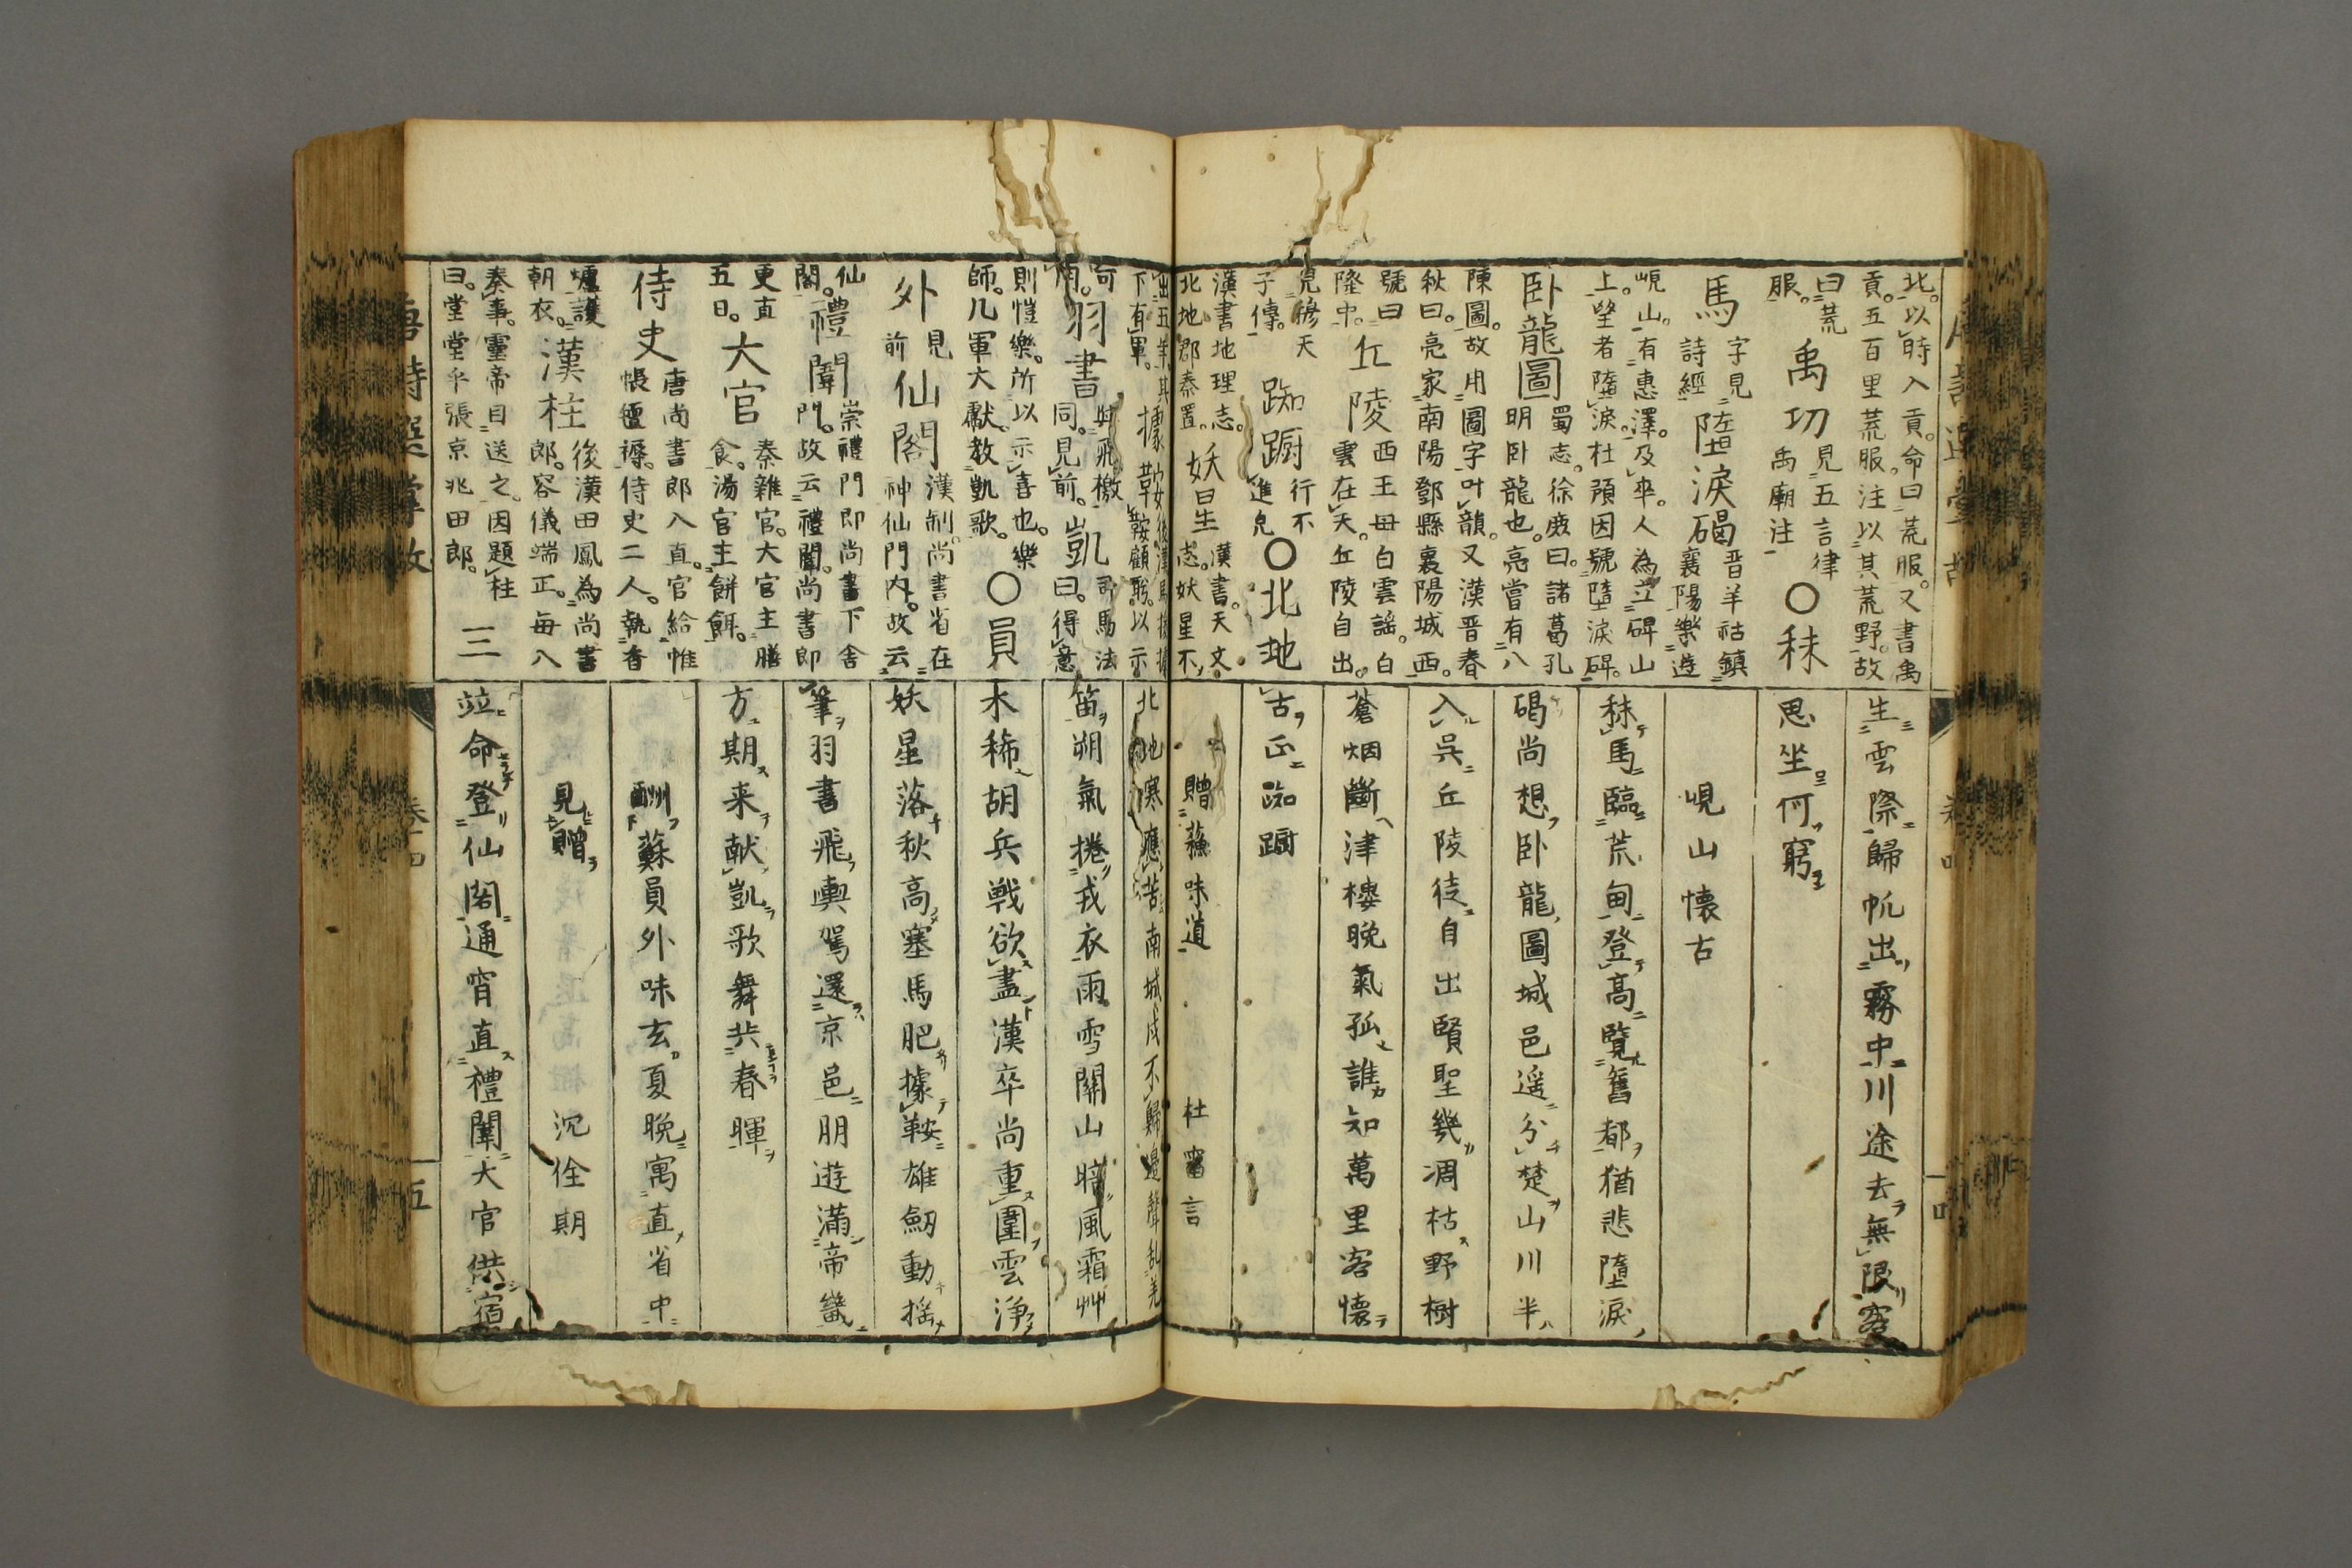 北。以時入貢。命曰荒服。又書禹
貢。五百里荒服。注以其荒野。故
曰荒
服。
禹功
見五言律
禹廟注
○秣
馬
字見
詩經
墮淚碣
晋羊祜鎮
襄陽樂遊
峴山。有惠澤。及卒。人為立碑山
上。望者墮淚。杜預因號墮淚碑。
卧龍圖
蜀志。徐庶曰。諸葛孔
明卧龍也。亮嘗有八
陳圖。故用圖字叶韻。又漢晋春
秋曰。亮家南陽鄧縣襄陽城西。
號曰
隆中。
丘陵
西王母白雲謡。白
雲在天。丘陵自出。
見穆天
子傳。
踟蹰
行不
進皃
○北地
漢書地理志。
北地郡秦置。
妖星
漢書。天文
志。妖星不
生雲際歸帆出霧中川途去無限客
思坐何窮
峴山懐古
秣馬臨荒甸登高覽舊都猶悲墮淚
碣尚想卧龍圖城邑遥分楚山川半
入吳丘陵徒自出賢聖幾凋枯野樹
蒼烟斷津樓晩氣孤誰知萬里客懐
古正踟蹰
贈蘓味道
杜審言
出五年其
下有軍。
據鞍
後漢馬援據
鞍顧眄。以示
可
用。
羽書
與飛檄
同。見前。
凱
司馬法
曰。得意
則愷樂。所以示喜也。樂
師。凡軍大獻。教凱歌。
○員
外
見
前
仙閣
漢制。尚書省在
神仙門内。故云
仙
閣。
禮闈
崇禮門即尚書下舍
門。故云禮闈。尚書郎
更直
五日。
大官
秦雜官。大官主膳
食。湯官主餅餌。
侍史
唐尚書郎入直。官給帷
帳氊褥。侍史二人。執香
爐護
朝衣。
漢柱
後漢田鳳為尚書
郎。容儀端正。毎入
奏事。靈帝目送之。因題柱
曰。堂堂乎張京兆田郎。
三
北地寒應苦南城戍不歸邉聲乱羌
笛朔氣捲戎衣雨雪關山暗風霜艸
木稀胡兵戦欲盡漢卒尚重圍雲浄
妖星落秋高塞馬肥據鞍雄劒動揺
筆羽書飛輿駕還京邑朋遊滿帝畿
方期来献凱歌舞共春暉
酬蘇員外味玄夏晩寓直省中
見贈
沉佺期
竝命登仙閣通宵直禮闈大官供宿
五